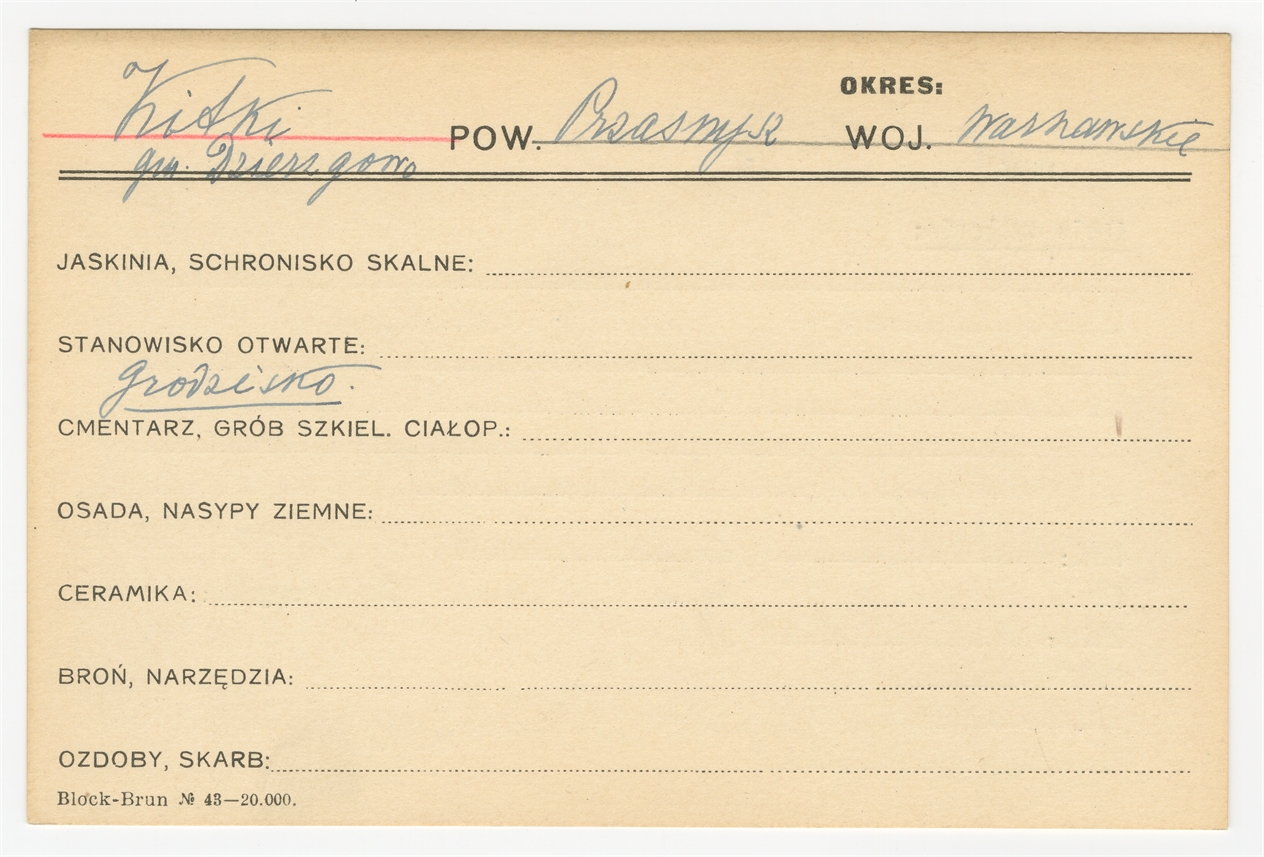 OKRES:
Kitki POW. Przasnysz WOJ. Warszawskie
gm. Dzierzgowo
JASKINIA, SCHRONISKO SKALNE:
STANOWISKO OTWARTE:
Grodzisko.
CMENTARZ, GRÓB SZKIEL. CIAŁOP.:
OSADA, NASYPY ZIEMNE:
CERAMIKA:
BROŃ, NARZĘDZIA:
OZDOBY, SKARB:
Block-Brun № 43—20.000.